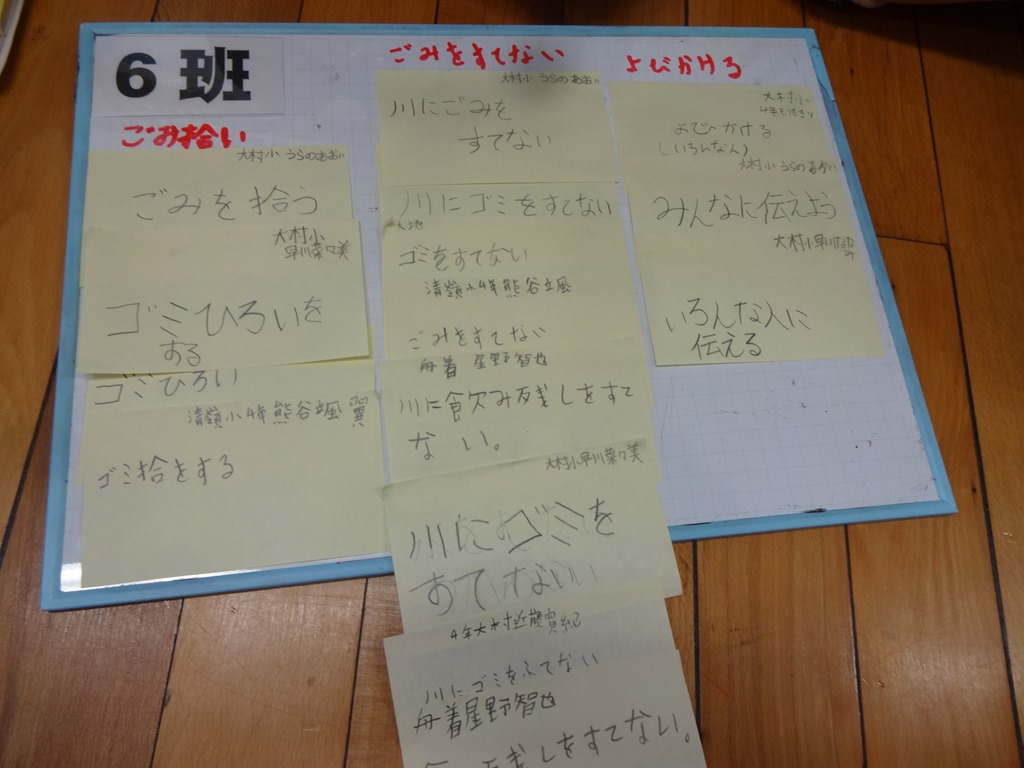 6班
ごみ拾い
大村小 うらのあおい
ごみを拾う
大村小
早川菜々美
ゴミひろいを
する
ゴミひろい
清嶺小4年 熊谷颯翼
ゴミ拾をする
ごみをすてない
大村小 うらのあおい
川にごみを
すてない
川にゴミをすてない
ゴミをすてない
清嶺小4年熊谷颯
ごみをすてない
舟着 星野智也
川に食欠み残しをすて
ない。
大村小早川菜々美
川にゴミを
すてない
4年大村近藤
川にゴミをふてない
舟着星野智也
残しをすてない。
よびかける
大村小
よびかける
(いろんな人)
大村小 うらのあおい
みんなに伝えよう
大村小早川
いろんな人に
伝える